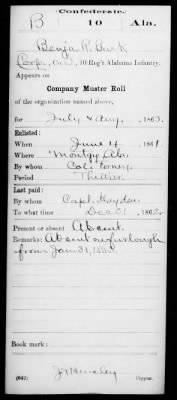 Confederate.
B 10 Ala.
Benja R. Burk
Corp., Co. , 10 Reg't Alabama Infantry.
Appears on
Company Muster Roll
of the organization named above,
for July & Aug, 1863.
Enlisted:
When June 4, 1861.
Where Montgy Ala.
By whom Col. Forney
Period The War
Last paid:
By whom Capt. Hayden
To what time Dec 31, 1862.
Present or absent Absent.
Remarks: Absent on furlough
from Jan 31, 1863.
Book mark:
(642) Copyist.